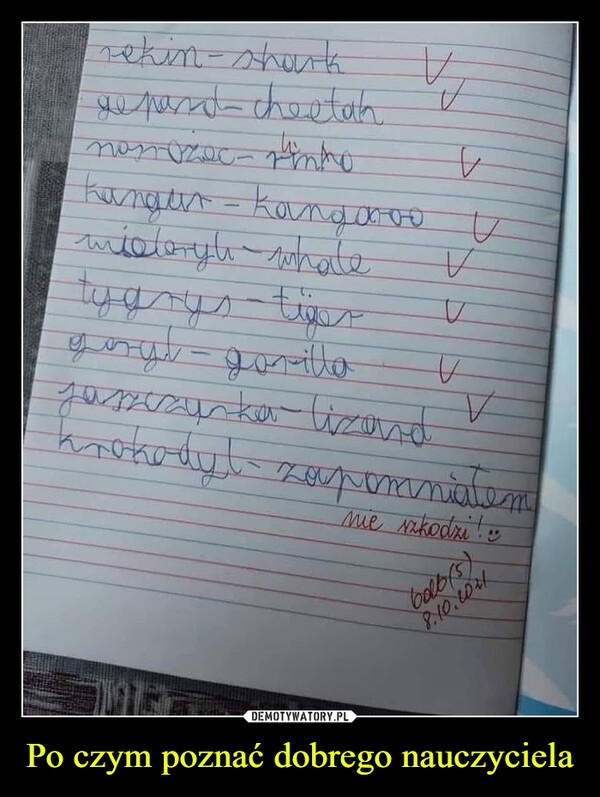 rekin - shark V
gepard - cheetah V
hi
nosrożec - rinho V
kangur - kangaroo V
wieloryb - whale V
tygrys - tiger V
goryl - gorilla V
jaszczurka - lizard V
krokodyl - zapomniałem
nie szkodzi!
bdb(5)
8.10.2021
DEMOTYWATORY.PL
Po czym poznać dobrego nauczyciela